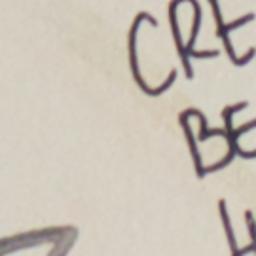 CRE
BE